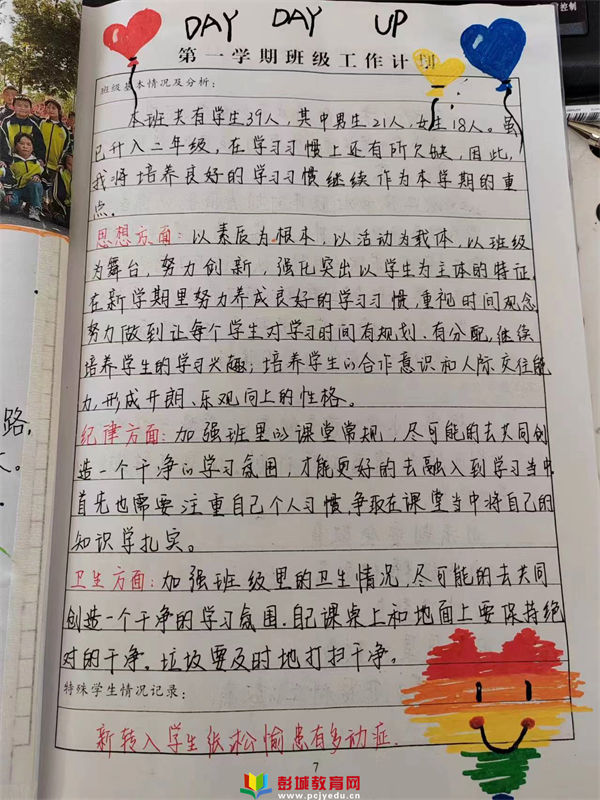 DAY DAY UP
第一学期班级工作计划
班级基本情况及分析：
本班共有学生39人，其中男生21人，女生18人。虽
已升入二年级，在学习习惯上还有所欠缺，因此，
我将培养良好的学习习惯继续作为本学期的重
点。
思想方面：以素质为根本，以活动为载体，以班级
为舞台，努力创新，强化突出以学生为主体的特征
在新学期里努力养成良好的学习习惯，重视时间观念
努力做到让每个学生对学习时间有规划、有分配，继续
培养学生的学习兴趣；培养学生的合作意识和人际交往能
力，形成开朗、乐观向上的性格。
纪律方面：加强班里的课堂常规，尽可能的去共同创
造一个干净的学习氛围，才能更好的去融入到学习当中
首先也需要注重自己个人习惯，争取在课堂当中将自己的
知识学扎实。
卫生方面：加强班级里的卫生情况，尽可能的去共同
创造一个干净的学习氛围．自己课桌上和地面上要保持绝
对的干净，垃圾要及时地打扫干净。
特殊学生情况记录：
新转入学生 松愉患有多动症．
7
路，
。
控制
彭城教育网
www.pcjyedu.cn